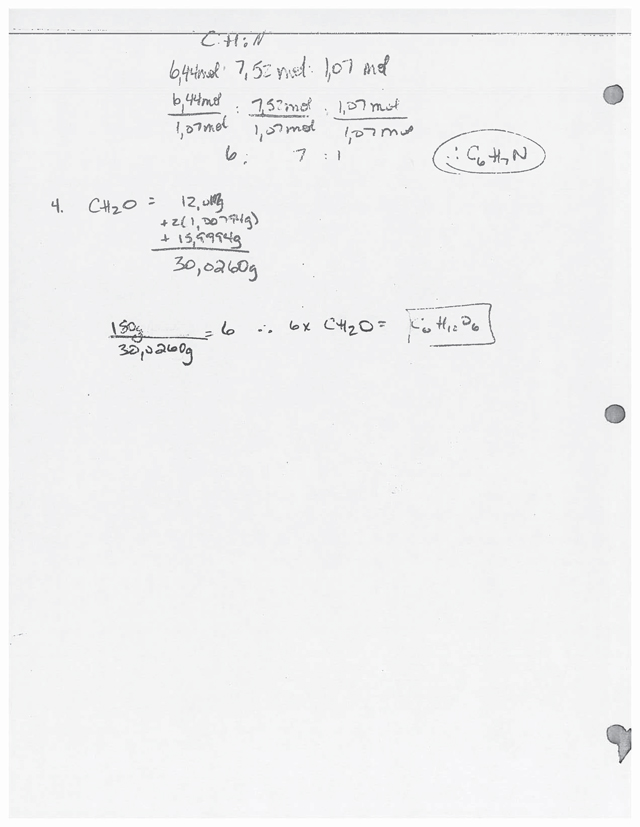 C:H:N
6,44mol: 7,52mol: 1,07 mol
6,44mol : 7,52mol : 1,07mol
1,07mol 1,07mol 1,07mol
6: 7 : 1 ∴ C6H7N
4. CH2O = 12,011g
+2(1,00794g)
+ 15,9994g
30,0260g
180g = 6 ∴ 6x CH2O = C6H12O6
30,0260g